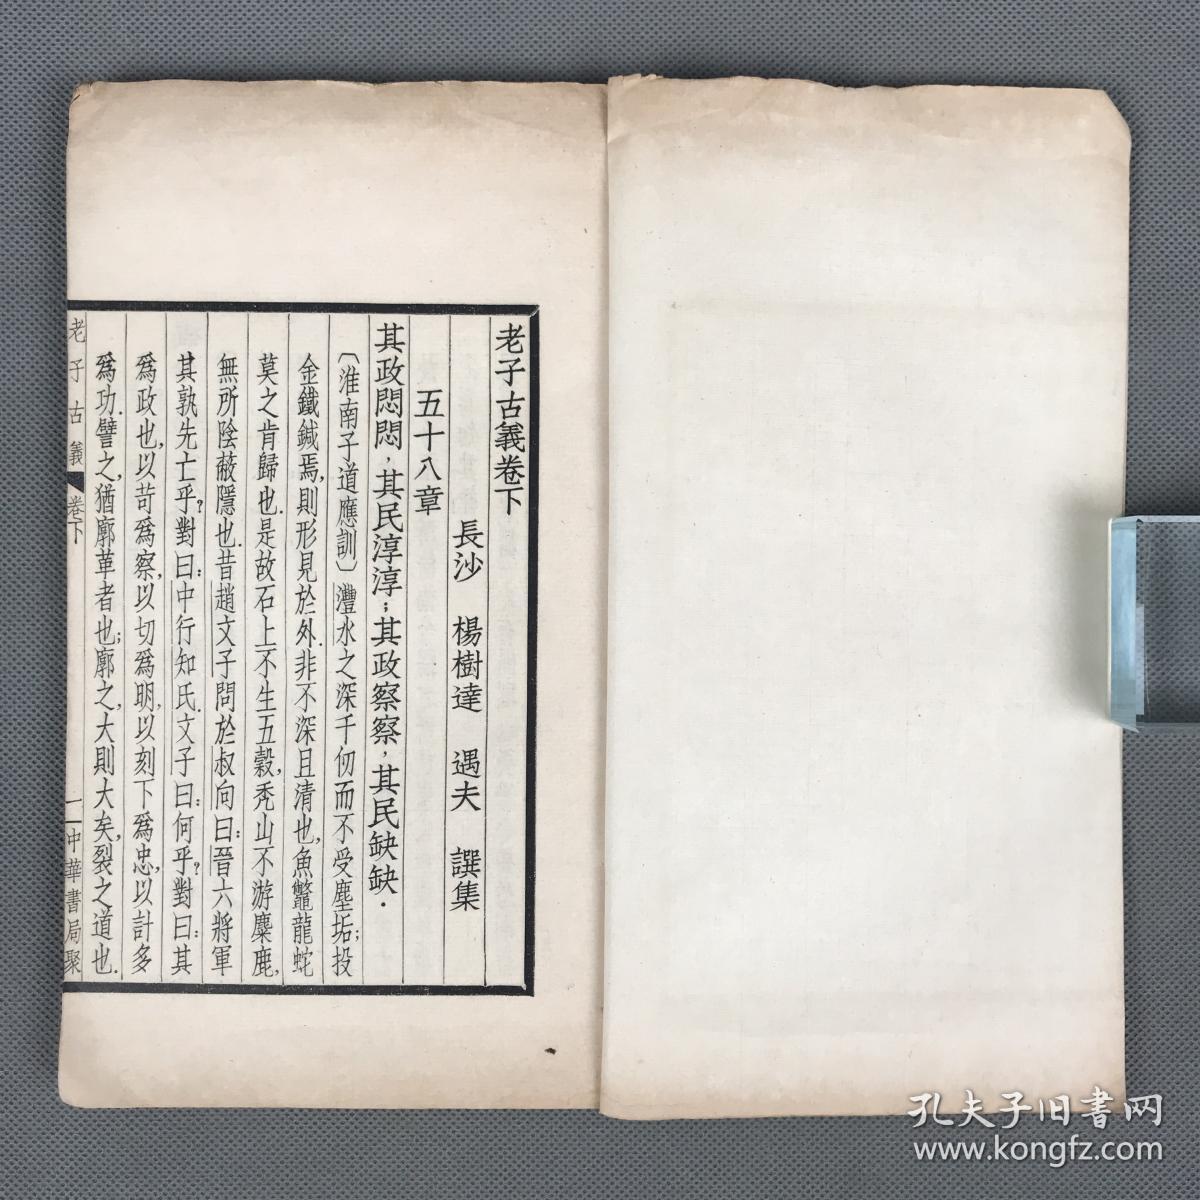 老子古義卷下
長沙 楊樹達 遇夫 譔集
五十八章
其政悶悶，其民淳淳；其政察察，其民缺缺．
〔淮南子道應訓〕灃水之深千仞而不受塵垢；投
金鐵鍼焉，則形見於外．非不深且清也，魚鼈龍蛇
莫之肯歸也．是故石上不生五穀，禿山不游麋鹿，
無所陰蔽隱也．昔趙文子問於叔向曰：晉六將軍
其孰先亡乎？對曰：中行知氏．文子曰：何乎？對曰：其
爲政也，以苛爲察，以切爲明，以刻下爲忠，以計多
爲功．譬之，猶廓革者也；廓之，大則大矣，裂之道也．
老子古義 卷下 一 中華書局聚
孔夫子旧書网
www.kongfz.com